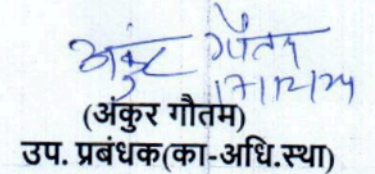 अंकुर गौतम
17/12/24
(अंकुर गौतम)
उप. प्रबंधक(का-अधि.स्था)